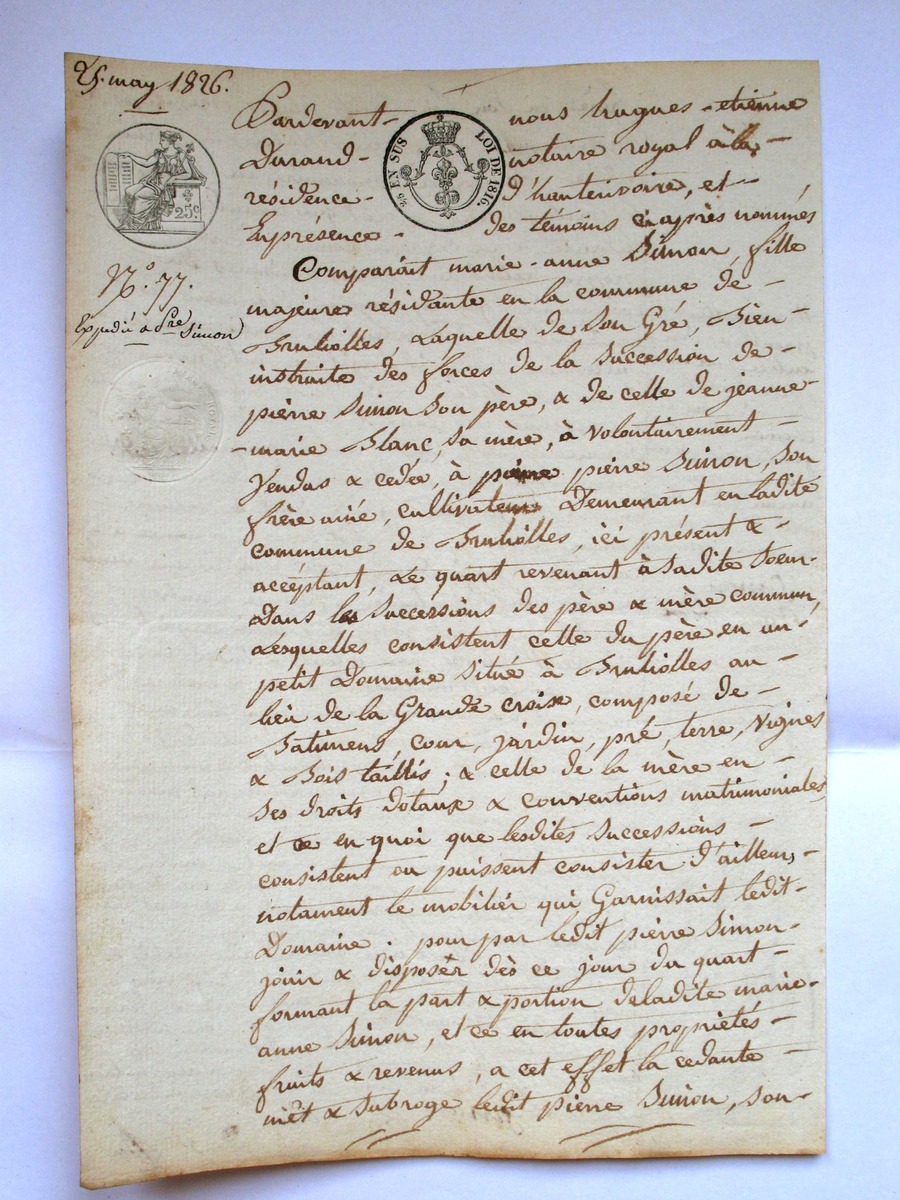 25. may 1826.
25c
N.º 77.
Expédié a Pre
Simon
EN SUS LOI DE 1816.
Pardevant - nous hugues - etienne
Durand - notaire royal à la -
résidence - d'hauterivoire, et -
En présence - des témoins ci après nommés
Comparait marie - anne Simon, fille
majeure résidante en la commune de -
Bruliolles, Laquelle de Son Gré, Bien -
instruite des forces de la Succession de -
pierre Simon Son père, & de celle de jeanne -
- marie Blanc, Sa mère, à volontairement -
Vendus & cedée, à pierre Simon, Son
frère ainé, cultivateur Demeurant en ladite
commune de Bruliolles, ici présent & -
accéptant, Le quart revenant à Sadite Soeur -
Dans les Successions des père & mère commun,
Lesquelles consistent celle du père en un -
petit Domaine Situé à Bruliolles au -
lieu de la Grande croix, composé de -
Batimens, cour, jardin, pré, terre, Vignes
& Bois taillis; & celle de la mère en -
Ses droits dotaux & conventions matrimoniales,
et ce en quoi que lesdites Successions -
consistent ou puissent consister d'ailleur, -
notament le mobiliér qui Garnissait ledit -
Domaine. pour par ledit pierre Simon -
jouir & disposér dès ce jour du quart -
formant la part & portion de ladite marie -
anne Simon, et ce en toutes propriétés -
fruits & revenus, a cet effet la cedante -
mêt & Subroge ledit pierre Simon, Son -